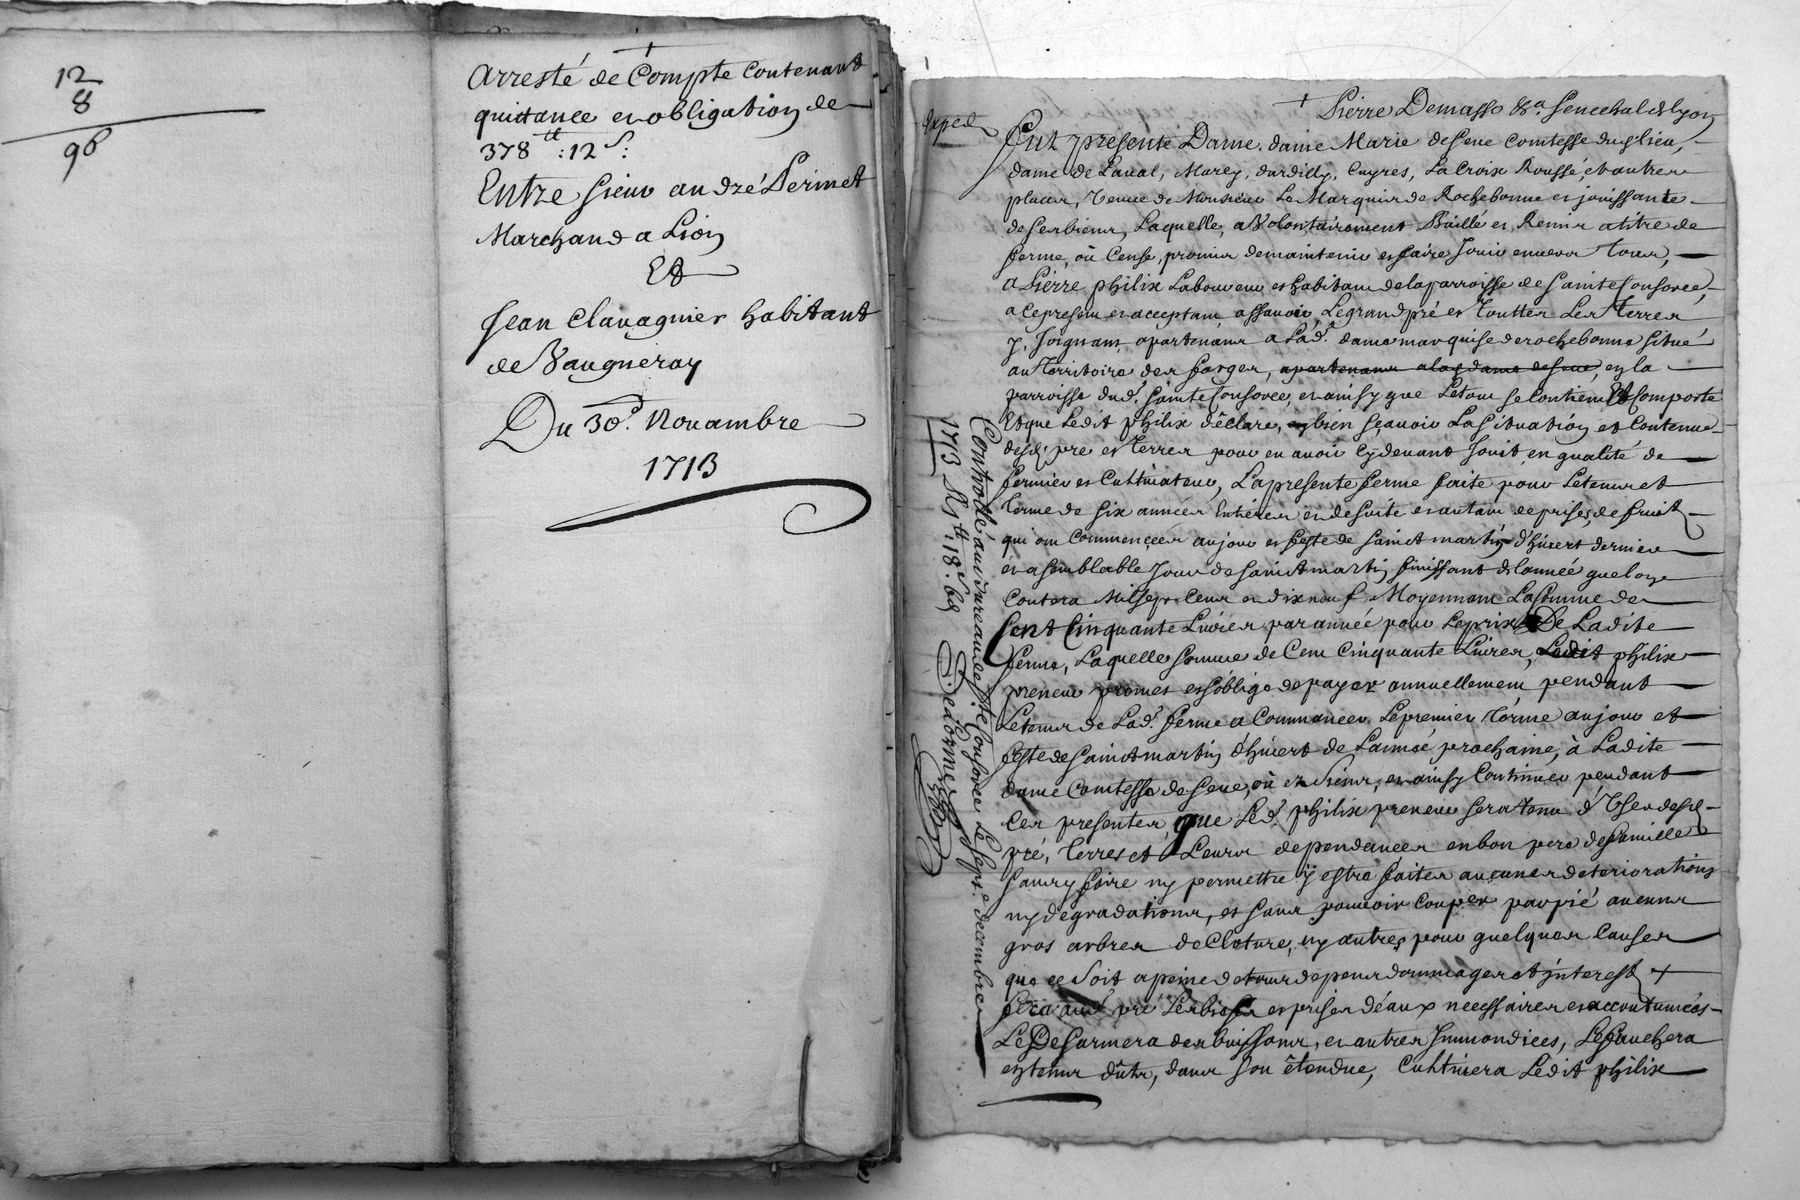 12
8
96
Arresté de Compte Contenant
quittance et obligation de
378 tt : 12 s :
Entre sieur andré Perinet
Marchand a Lion
Et
Jean Clavagnier habitant
de Vaugneray
Du 30e. Novambre
1713
exped
Pierre Demasso &a. senechal de lyon
Fut presente Dame, dame Marie de seve Comtesse du
dame de Laval, Marey, dardilly, Cuyres, La Croix Rousse, et autres
places, veuve de Monsieur Le Marquis de Rochebonne et jouissante
de ses biens, Laquelle, a volontairement Baillé et Remis a titre de
ferme, où Cense, promis de maintenir et faire Jouir envers tous,
a Pierre philix Laboureur et habitant de la parroisse de sainte Consorce,
a ce present et acceptant, assavoir, Le grand pré et Touttes Les Terres
y Joignant, apartenant a Lad. dame marquise de rochebonne situé
au Territoire des farges, apartenant a lad dame de seve, en la
parroisse dud. sainte Consorce, et ainsy que Le tout se Contient Et Comporte
Et que Ledit philix déclare, bien sçavoir La situation et Contenue
desd. pre et Terres pour en avoir cy devant Jouit en qualité de
fermier et Cultivateur, La presente ferme faite pour Le temps et
Terme de six années Entieres et de suite et autant de prises de fruits
qui ont Commencées au jour et feste de sainct martin d'hivert dernier
et a semblable Jour de sainct martin finissant de lannée que lon
Contera mil sept Cent et dix neuf, Moyennant La somme de
Cent Cinquante Livres par année pour Le prix De Ladite
ferme, Laquelle somme de Cent Cinquante Livres, Ledit philix
preneur promet et s'oblige de payer annuellement pendant
Le temps de Lad. ferme a Commancer Le premier Terme au jour et
feste de sainct martin d'hivert de Lannée prochaine, à Ladite
dame Comtesse de seve, où es siens, et ainsy Continuer pendant
Ces presentes, que Led. philix preneur sera tenu d'User desd.
pré, Terres et Leurs dependances en bon pere de famille
sans y faire ny permettre y estre faites aucunes deteriorations
ny degradations, et sans pouvoir Couper par pié aucuns
gros arbres de Cloture, ny autres pour quelques Causes
que ce soit a peine de tous depens dommages et jnterests +
fera aud. pré Les et prises d'éaux necessaires et accoutumées
Le Desarmera des buissons, et autres Jmmondices, Le fauchera
en temps dûts, dans son étendue, Cultivera Ledit philix
Controllé au bureau de ste. Consorce Le sept.e decembre
1713 R tt : 18 s. 6 d